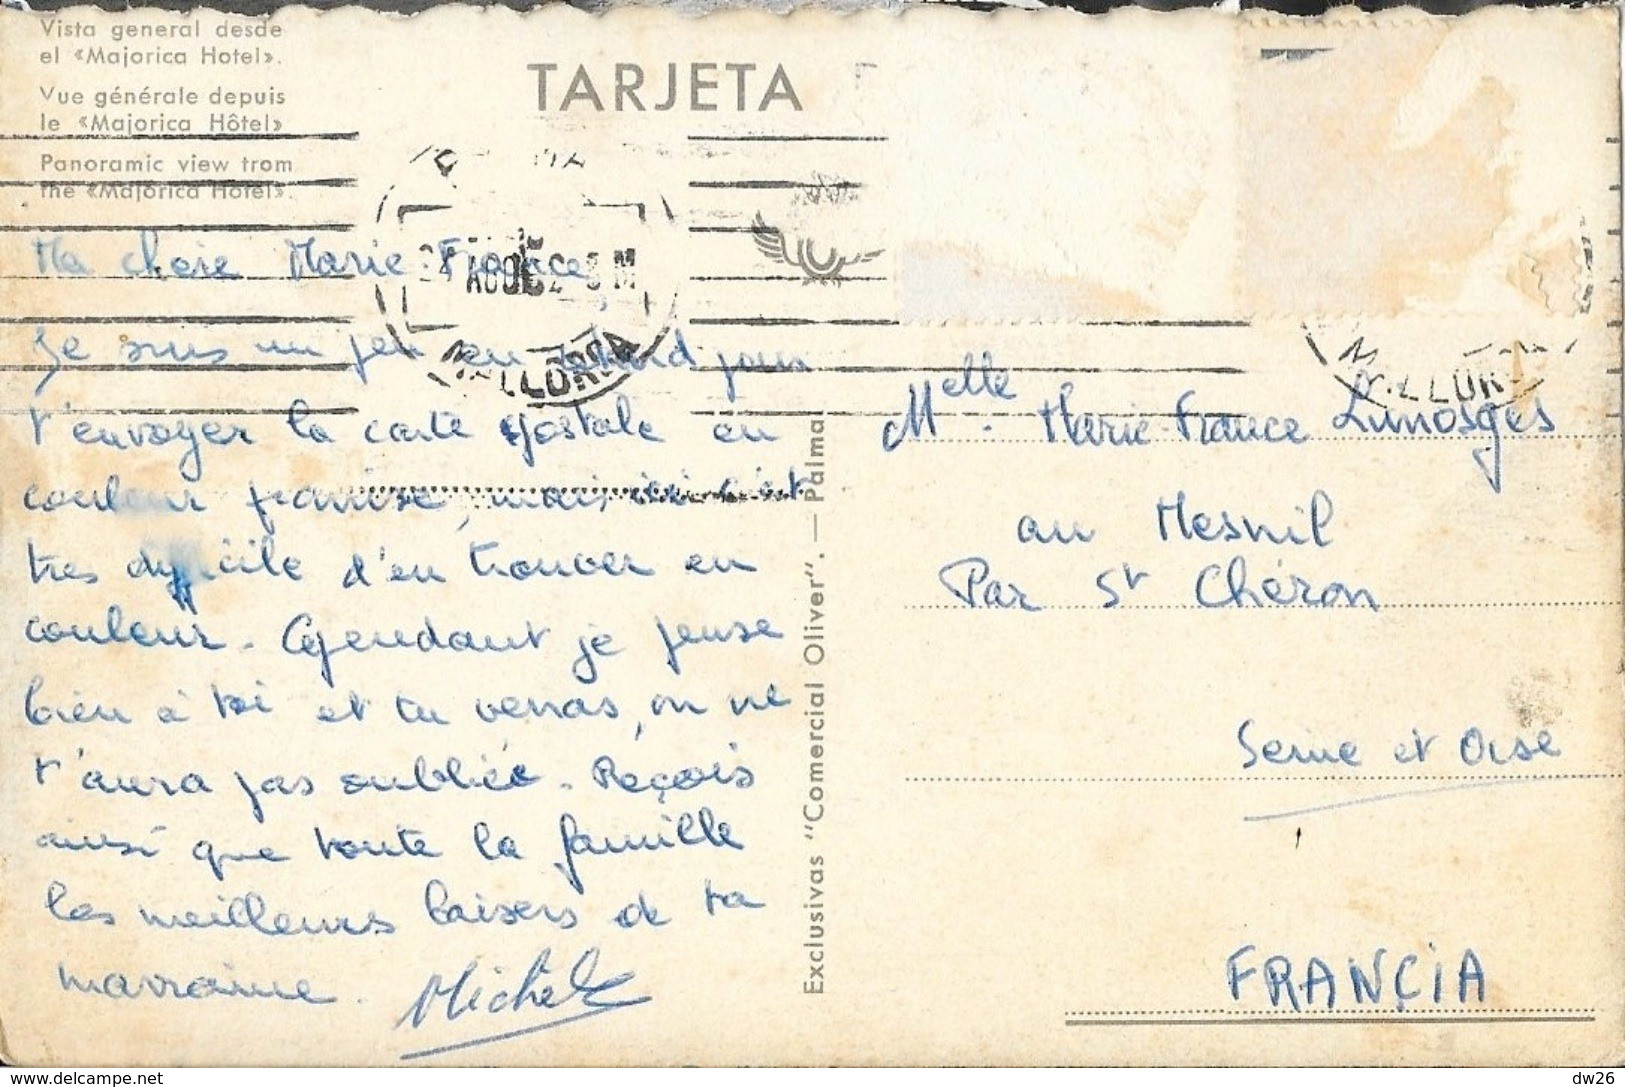 Vista general desde
el «Majorica Hotel».
Vue générale depuis
le «Majorica Hôtel»
Panoramic view from
the «Majorica Hotel».
TARJETA
AGO 62 8 M
MALLORCA
MALLORCA
Ma chère Marie France,
Je suis un peu en retard pour
t'envoyer la carte postale en
couleur promise, mais ici c'est
très difficile d'en trouver en
couleur. Cependant je pense
bien à toi et tu verras, on ne
t'aura pas oubliée. Reçois
ainsi que toute la famille
les meilleurs baisers de ta
marraine. Michèle
Exclusivas "Comercial Oliver". — Palma
Melle. Marie-France Limosges
au Mesnil
Par St Chéron
Seine et Oise
FRANÇIA
delcampe.net
dw26